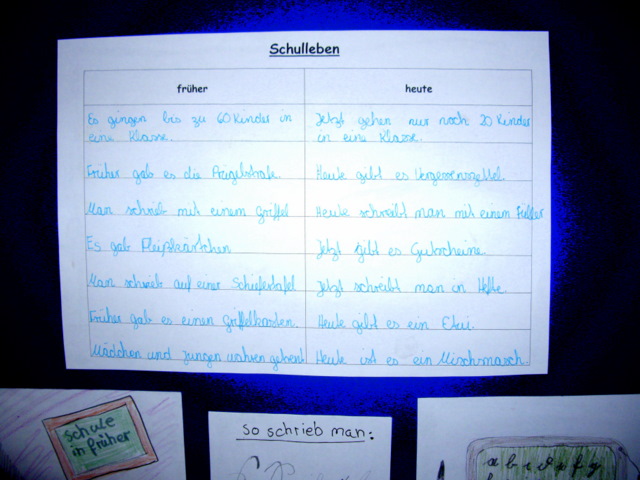 Schulleben
früher heute
Es gingen bis zu 60 Kinder in Jetzt gehen nur noch 20 Kinder
eine Klasse. in eine Klasse.
Früher gab es die Prügelstrafe. Heute gibt es Vergessenszettel.
Man schrieb mit einem Griffel Heute schreibt man mit einem Füller
Es gab Fleißkärtchen Jetzt gibt es Gutscheine.
Man schrieb auf einer Schiefertafel Jetzt schreibt man in Hefte.
Früher gab es einen Griffelkasten. Heute gibt es ein Etui.
Mädchen und Jungen wahren getrent Heute ist es ein Mischmasch.
Schule
in früher
so schrieb man:
a b c d e f g